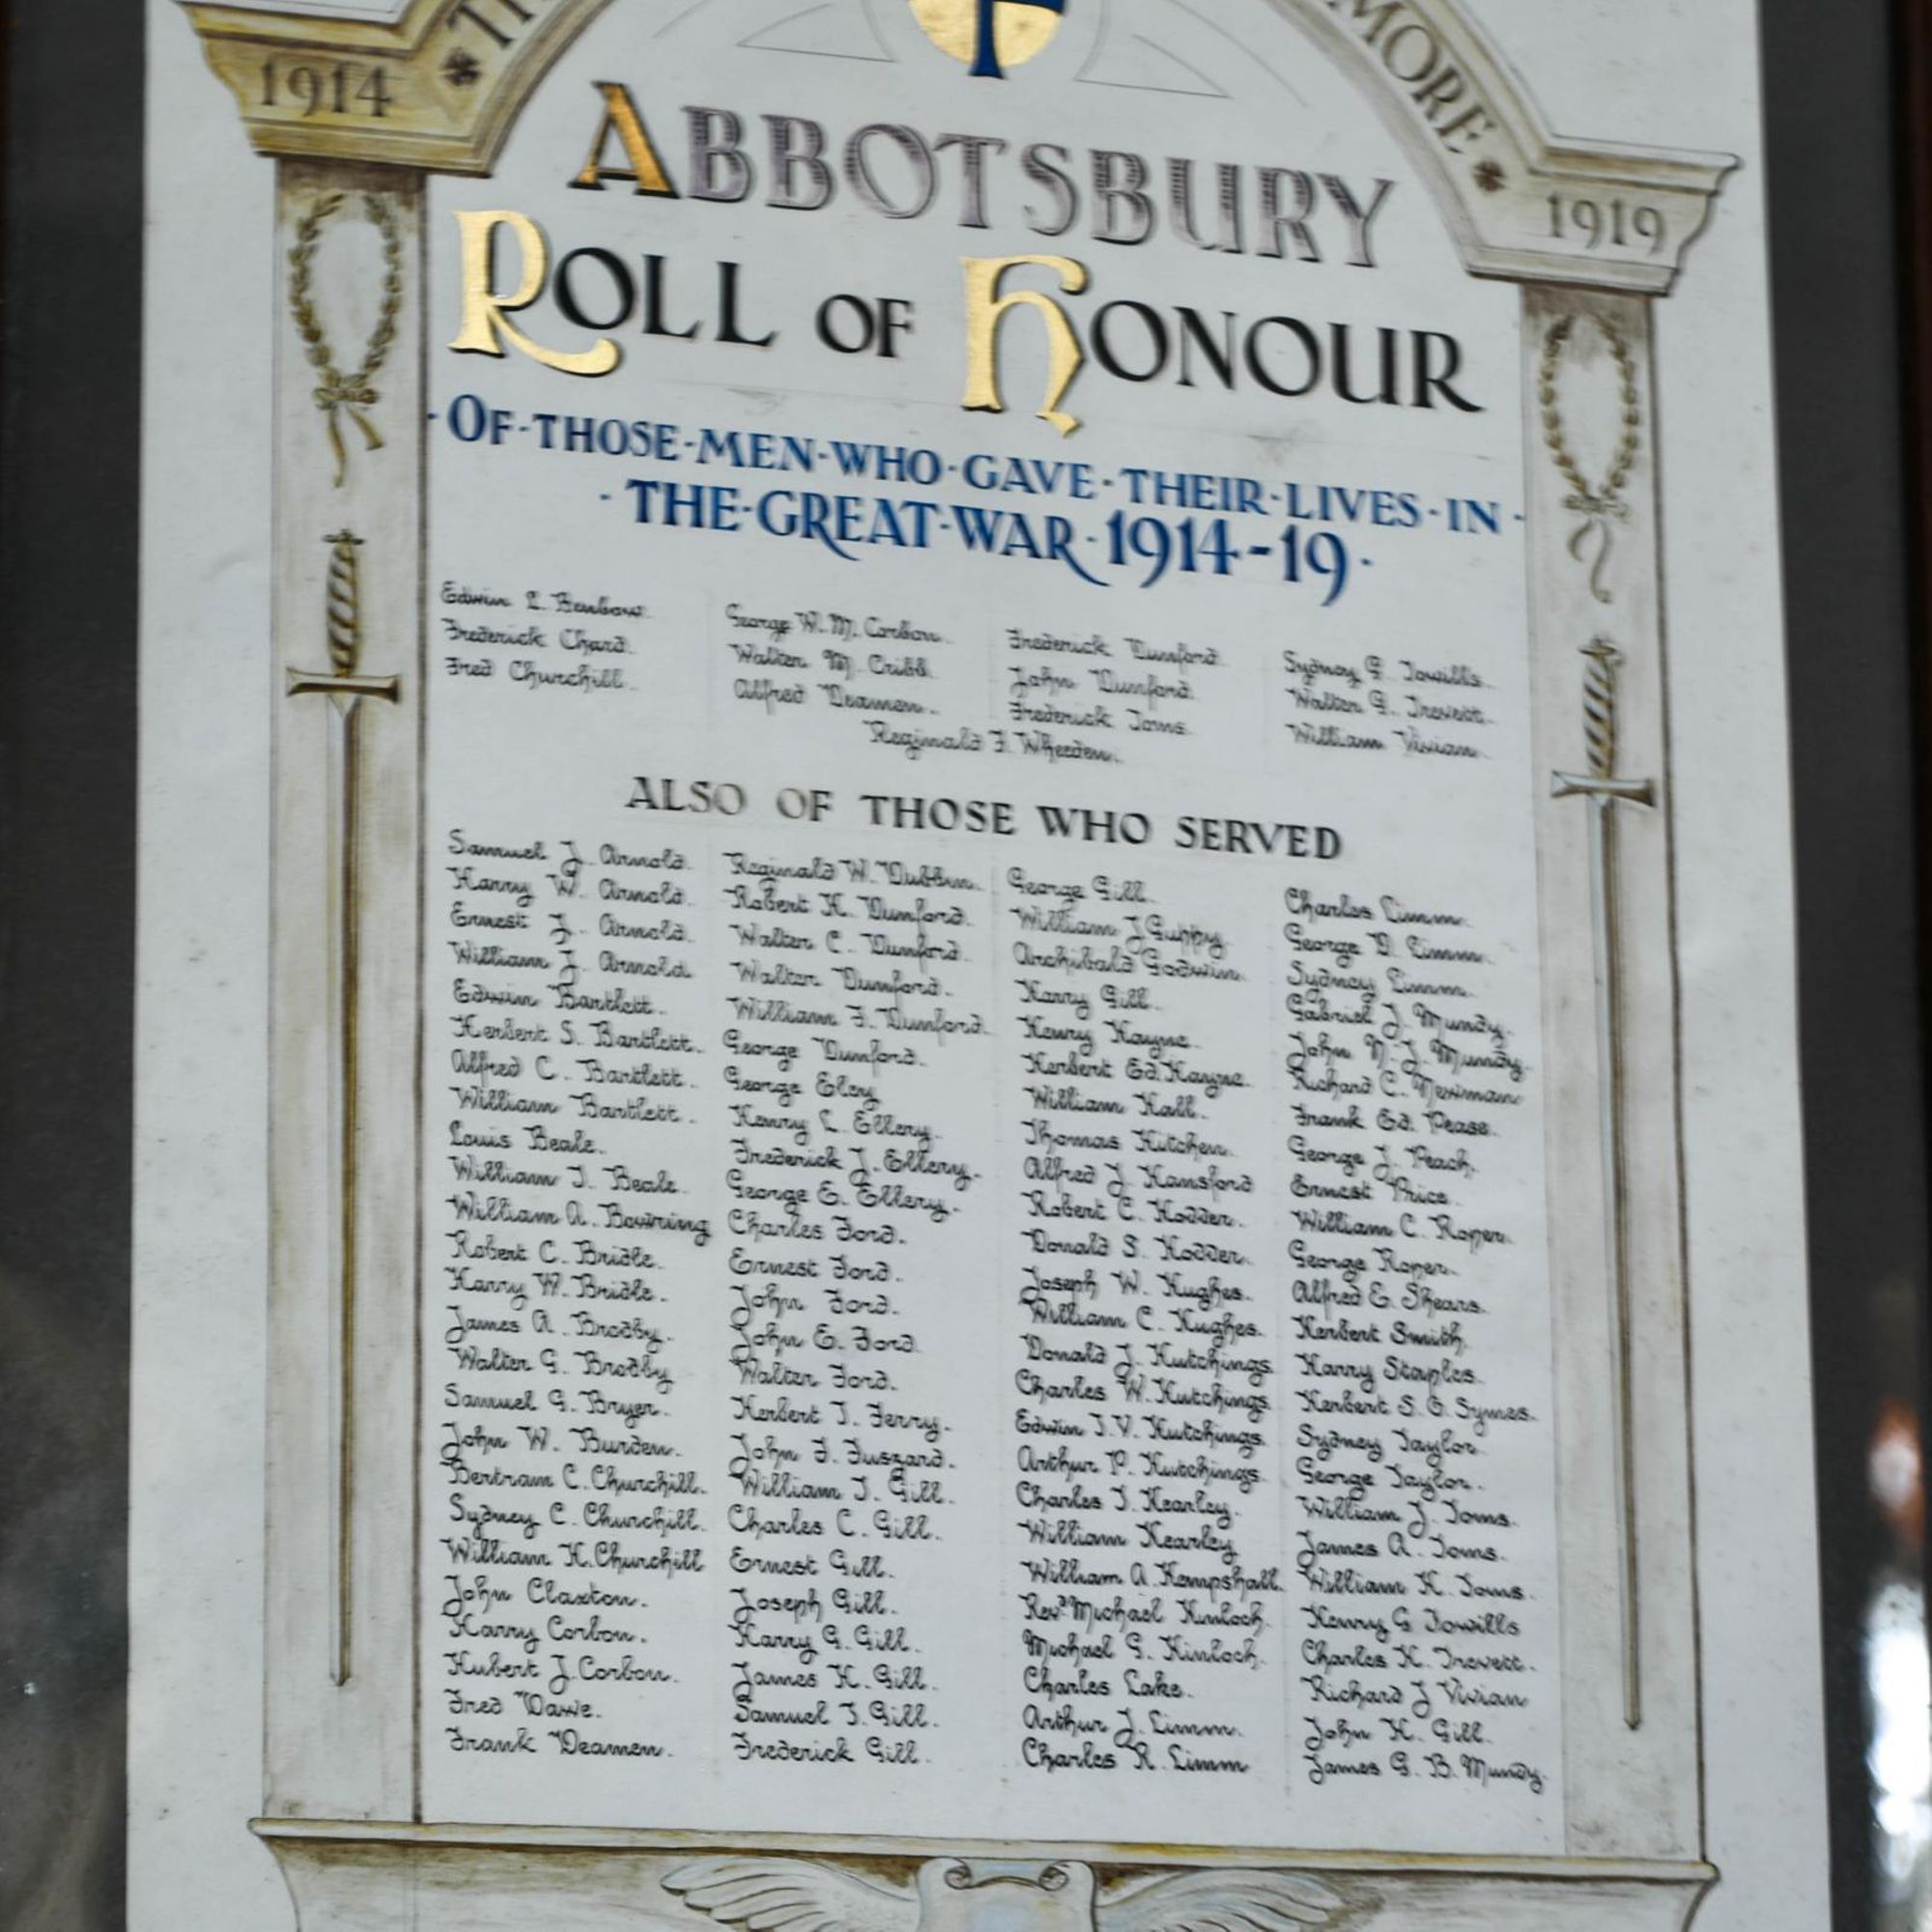 1914
MORE
1919
ABBOTSBURY
ROLL OF HONOUR
·OF·THOSE·MEN·WHO·GAVE·THEIR·LIVES·IN·
·THE·GREAT·WAR·1914-19·
Edwin L. Benbow.
Frederick Chard.
Fred Churchill.
George W. M. Corbon.
Walter M. Cribb.
Alfred Deamen.
Frederick Dunford.
John Dunford.
Frederick Toms.
Sydney G. Towills.
Walter G. Trevett.
William Vivian.
Reginald F. Wheeden.
ALSO OF THOSE WHO SERVED
Samuel J. Arnold.
Harry W. Arnold.
Ernest J. Arnold.
William J. Arnold.
Edwin Bartlett.
Herbert S. Bartlett.
Alfred C. Bartlett.
William Bartlett.
Louis Beale.
William T. Beale.
William A. Bowring
Robert C. Bridle.
Harry W. Bridle.
James A. Brodby.
Walter G. Brodby
Samuel G. Bryer.
John W. Burden.
Bertram C. Churchill.
Sydney C. Churchill.
William H. Churchill
John Claxton.
Harry Corbon.
Hubert J. Corbon.
Fred Dawe.
Frank Deamen.
Reginald W. Dubbin.
Robert H. Dunford.
Walter C. Dunford.
Walter Dunford.
William F. Dunford.
George Dunford.
George Eley
Henry L. Ellery.
Frederick J. Ellery.
George E. Ellery.
Charles Ford.
Ernest Ford.
John Ford.
John E. Ford.
Walter Ford.
Herbert T. Ferry.
John F. Fuszard.
William T. Gill.
Charles C. Gill.
Ernest Gill.
Joseph Gill.
Harry G. Gill.
James H. Gill.
Samuel T. Gill.
Frederick Gill.
George Gill.
William J Guppy.
Archibald Godwin.
Harry Gill.
Henry Hayne.
Herbert Ed. Hayne.
William Hall.
Thomas Hitchen.
Alfred J. Hansford
Robert C. Hodder.
Donald S. Hodder.
Joseph W. Hughes.
William C. Hughes.
Donald J. Hutchings.
Charles W. Hutchings.
Edwin T. V. Hutchings.
Arthur P. Hutchings.
Charles T. Kearley.
William Kearley
William A. Kempshall.
Revd Michael Kinloch.
Michael G. Kinloch.
Charles Lake.
Arthur J. Limm.
Charles R. Limm
Charles Limm.
George D. Limm.
Sydney Limm.
Gabriel J. Mundy.
John N. J. Mundy.
Richard C. Newman
Frank Ed. Pease.
George J. Peach.
Ernest Price.
William C. Roper.
George Roper.
Alfred E. Shears.
Herbert Smith.
Harry Staples.
Herbert S. O. Symes.
Sydney Taylor.
George Taylor.
William J. Toms.
James A. Toms.
William H. Toms.
Henry G Towills
Charles H. Trevett.
Richard J Vivian
John H. Gill.
James G. B. Mundy.